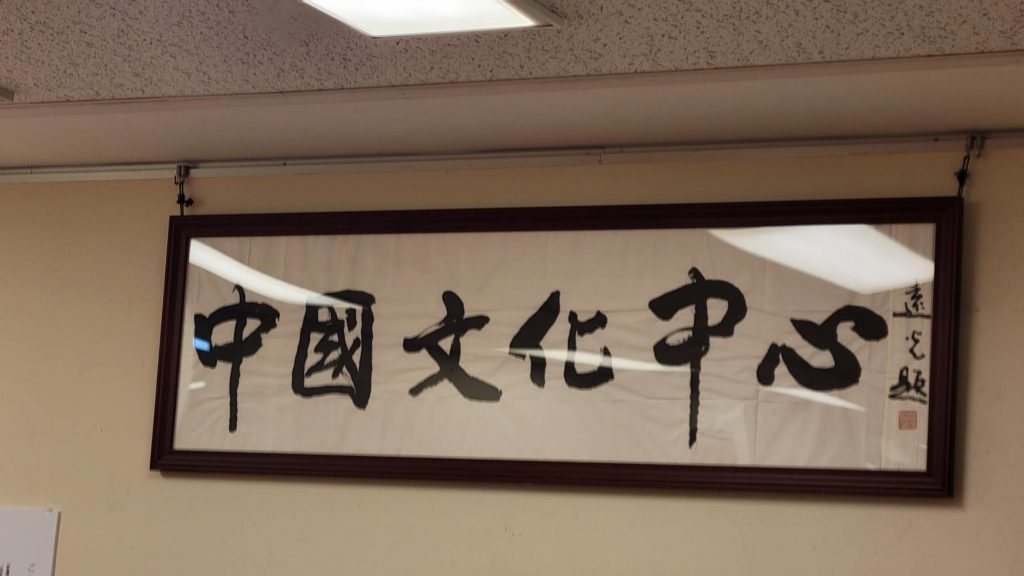 中國文化中心
遠光題